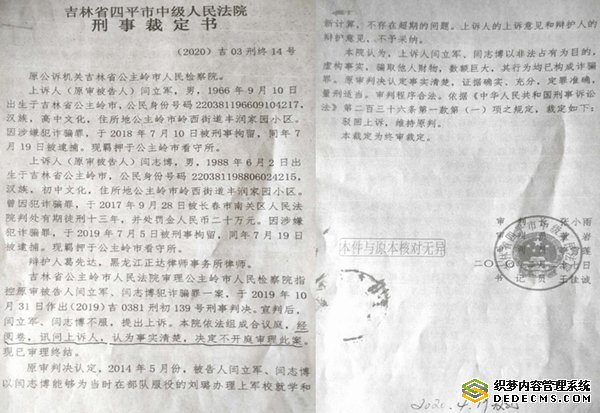 吉林省四平市中级人民法院
刑事裁定书
（2020）吉03刑终14号
原公诉机关吉林省公主岭市人民检察院。
上诉人（原审被告人）闫立军，男，1966年9月10日
出生于吉林省公主岭市，公民身份号码220381196609104217，
汉族，高中文化，住所地公主岭市岭西街道丰润家园小区。
因涉嫌犯诈骗罪，于2018年7月10日被刑事拘留，同年7
月19日被逮捕。现羁押于公主岭市看守所。
上诉人（原审被告人）闫志博，男，1988年6月2日出
生于吉林省公主岭市，公民身份号码220381198806024215，
汉族，初中文化，住所地公主岭市岭西街道丰润家园小区。
曾因犯诈骗罪，于2017年9月28日被长春市南关区人民法
院判处有期徒刑十三年，并处罚金人民币二十万元。因涉嫌
犯诈骗罪，于2019年7月5日被刑事拘留，同年7月19日
被逮捕。现羁押于公主岭市看守所。
辩护人葛先达，黑龙江正达律师事务所律师。
吉林省公主岭市人民法院审理公主岭市人民检察院指
控原审被告人闫立军、闫志博犯诈骗罪一案，于2019年10
月31日作出(2019)吉0381刑初139号刑事判决。宣判后，
闫立军、闫志博不服，提出上诉。本院依法组成合议庭，经
阅卷，讯问上诉人，认为事实清楚，决定不开庭审理此案。
现已审理终结。
原审判决认定，2014年5月份，被告人闫立军、闫志博
以闫志博能够为当时在部队服役的刘璐办理上军校就学和
新计算，不存在超期的问题。上诉人的上诉意见和辩护人的
辩护意见，不予采纳。
本院认为，上诉人闫立军、闫志博以非法占有为目的，
虚构事实，骗取他人财物，数额巨大，其行为均已构成诈骗
罪。原审判决认定事实清楚，证据确实、充分，定罪准确，
量刑适当。审判程序合法。依据《中华人民共和国刑事诉讼
法》第二百三十六条第一款第（一）项之规定，裁定如下：
驳回上诉，维持原判。
本裁定为终审裁定。
审 张小雨
审
审
本件与原本核对无异
二〇 日
书记员 王佳诚
织梦内容管理系统
DEDECMS.COM